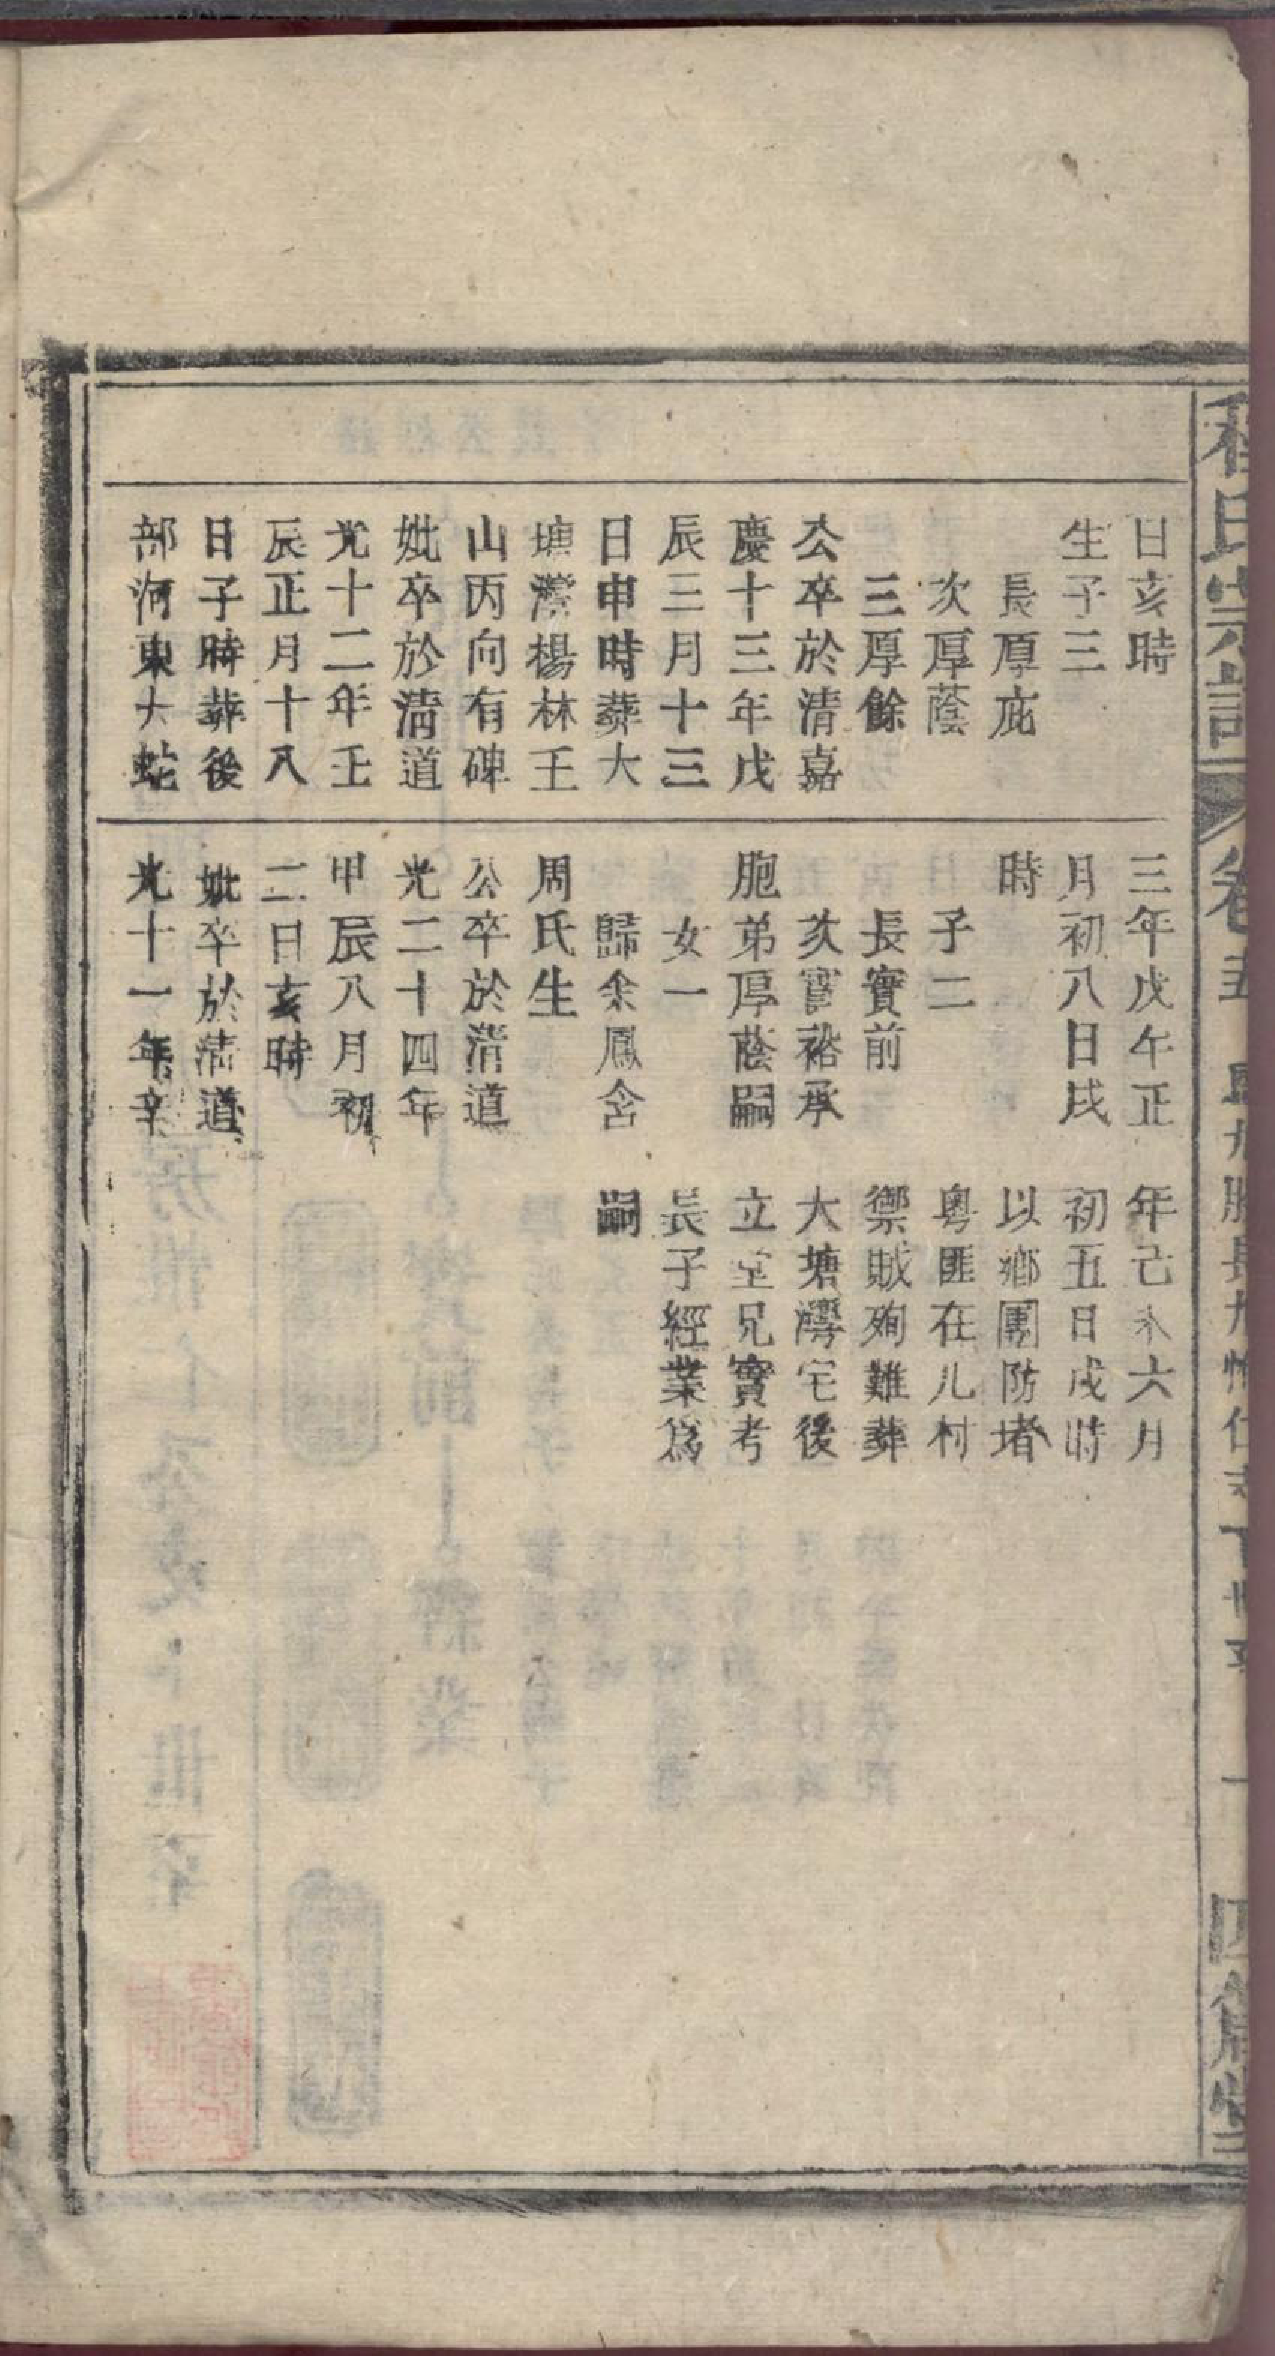 日亥時
生子三
長厚庇
次厚蔭
三厚餘
公卒於清嘉
慶十三年戊
辰三月十三
日申時葬大
塘灣楊林王
山丙向有碑
妣卒於清道
光十二年壬
辰正月十八
日子時葬後
部河東大蛇
三年戊午正
月初八日戌
時
子二
長實前
次實裕承
胞弟厚蔭嗣
女一
歸余鳳含
周氏生
公卒於清道
光二十四年
甲辰八月初
二日亥時
妣卒於清道
光十一年辛
年己未六月
初五日戌時
以鄉團防堵
粵匪在儿村
禦賊殉難葬
大塘灣宅後
立堂兄實考
長子經業為
嗣
程氏宗譜
卷五